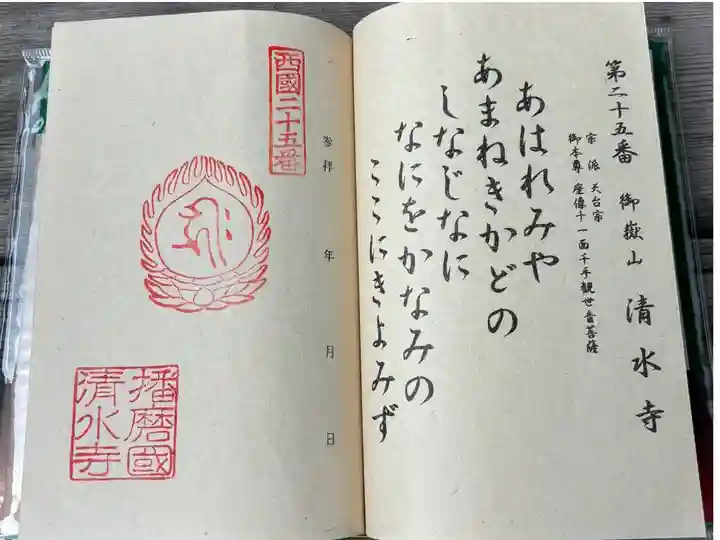 第二十五番 御嶽山 清水寺
宗派 天台宗
御本尊 座像十一面千手観世音菩薩
あはれみや
あまねきかどの
しなじなに
なにをかなみの
ここにきよみず
参拝 年 月 日
西國二十五番
播磨國
清水寺